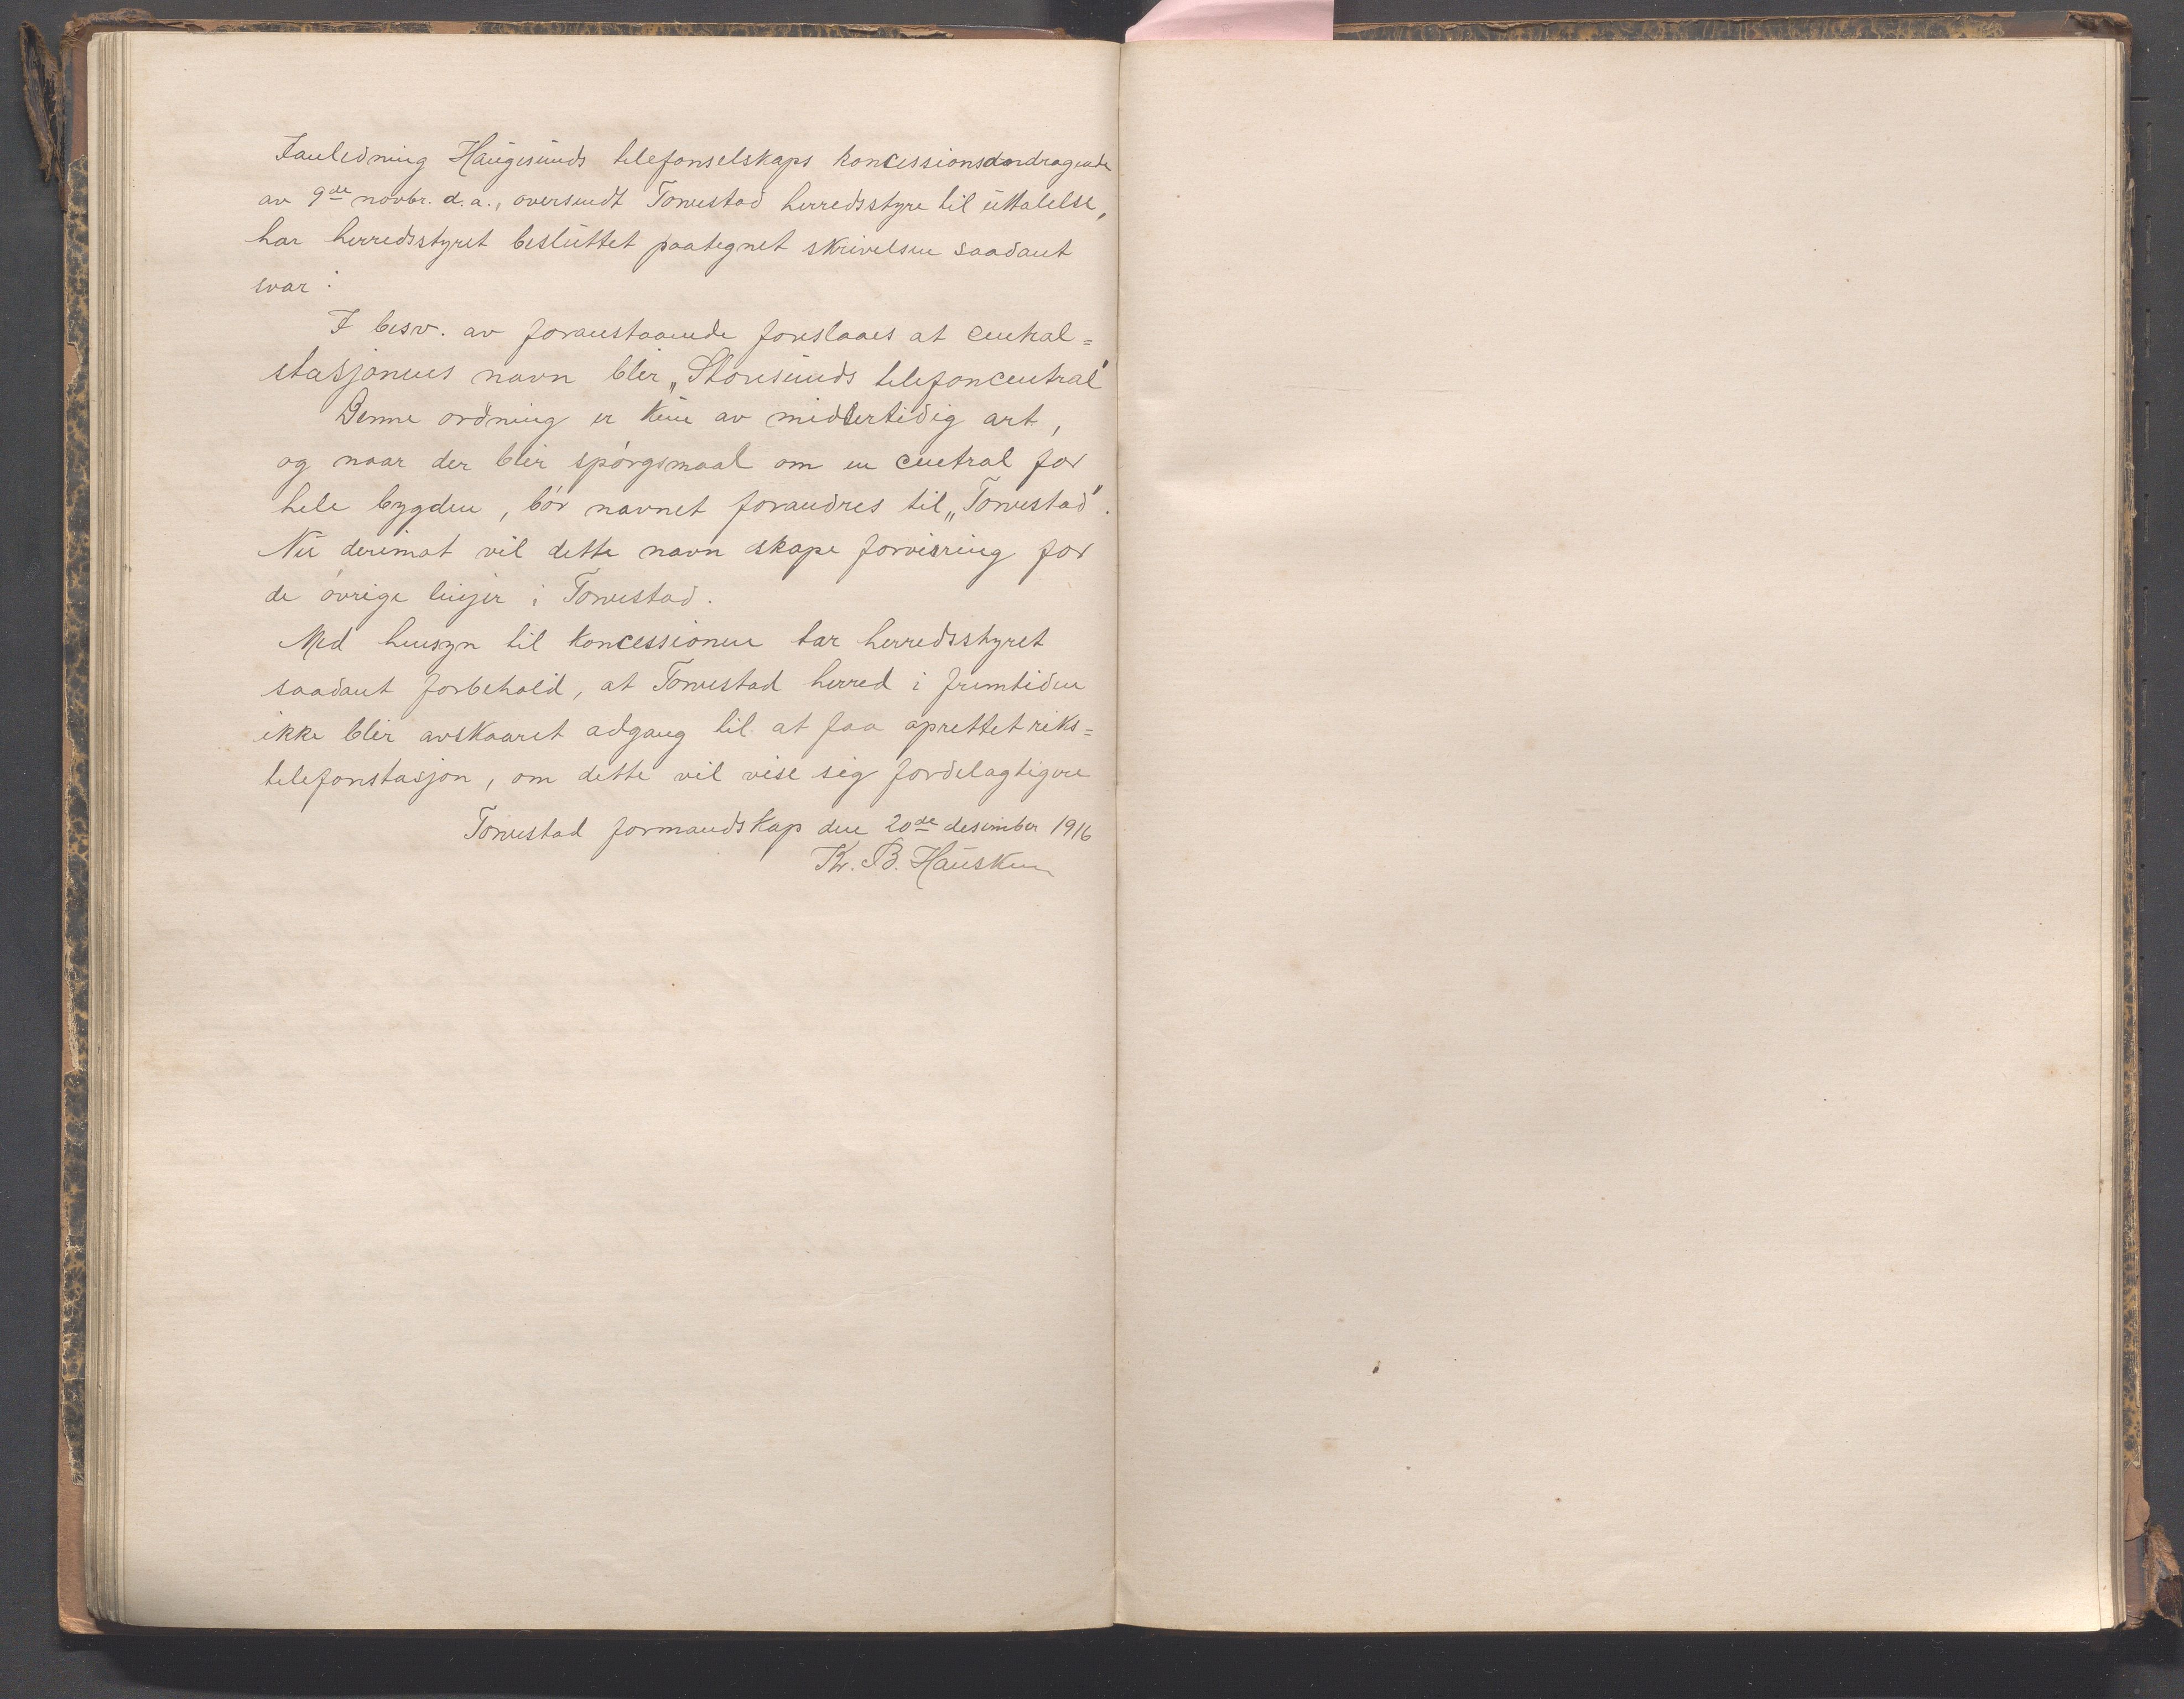 I anledning Haugesunds telefonselskaps koncessionsandragende
av 9de novbr. d.a., oversendt Torvestad herredsstyre til uttalelse,
har herredsstyret besluttet paategnet skrivelsen saadant
svar:
I besv. av foranstaaende foreslaaes at central=
stasjonens navn blir „Storesunds telefoncentral"
Denne ordning er kun av midlertidig art,
og naar der blir spørgsmaal om en central for
hele bygden, bør navnet forandres til „Torvestad".
Nu derimot vil dette navn skape forvirring for
de øvrige linjer i Torvestad.
Med hensyn til koncessionen tar herredsstyret
saadant forbehold, at Torvestad herred i fremtiden
ikke blir avskaaret adgang til at faa oprettet riks=
telefonstasjon, om dette vil vise sig fordelagtigere
Torvestad formandskap den 20de desember 1916
Kr. B. Hausken